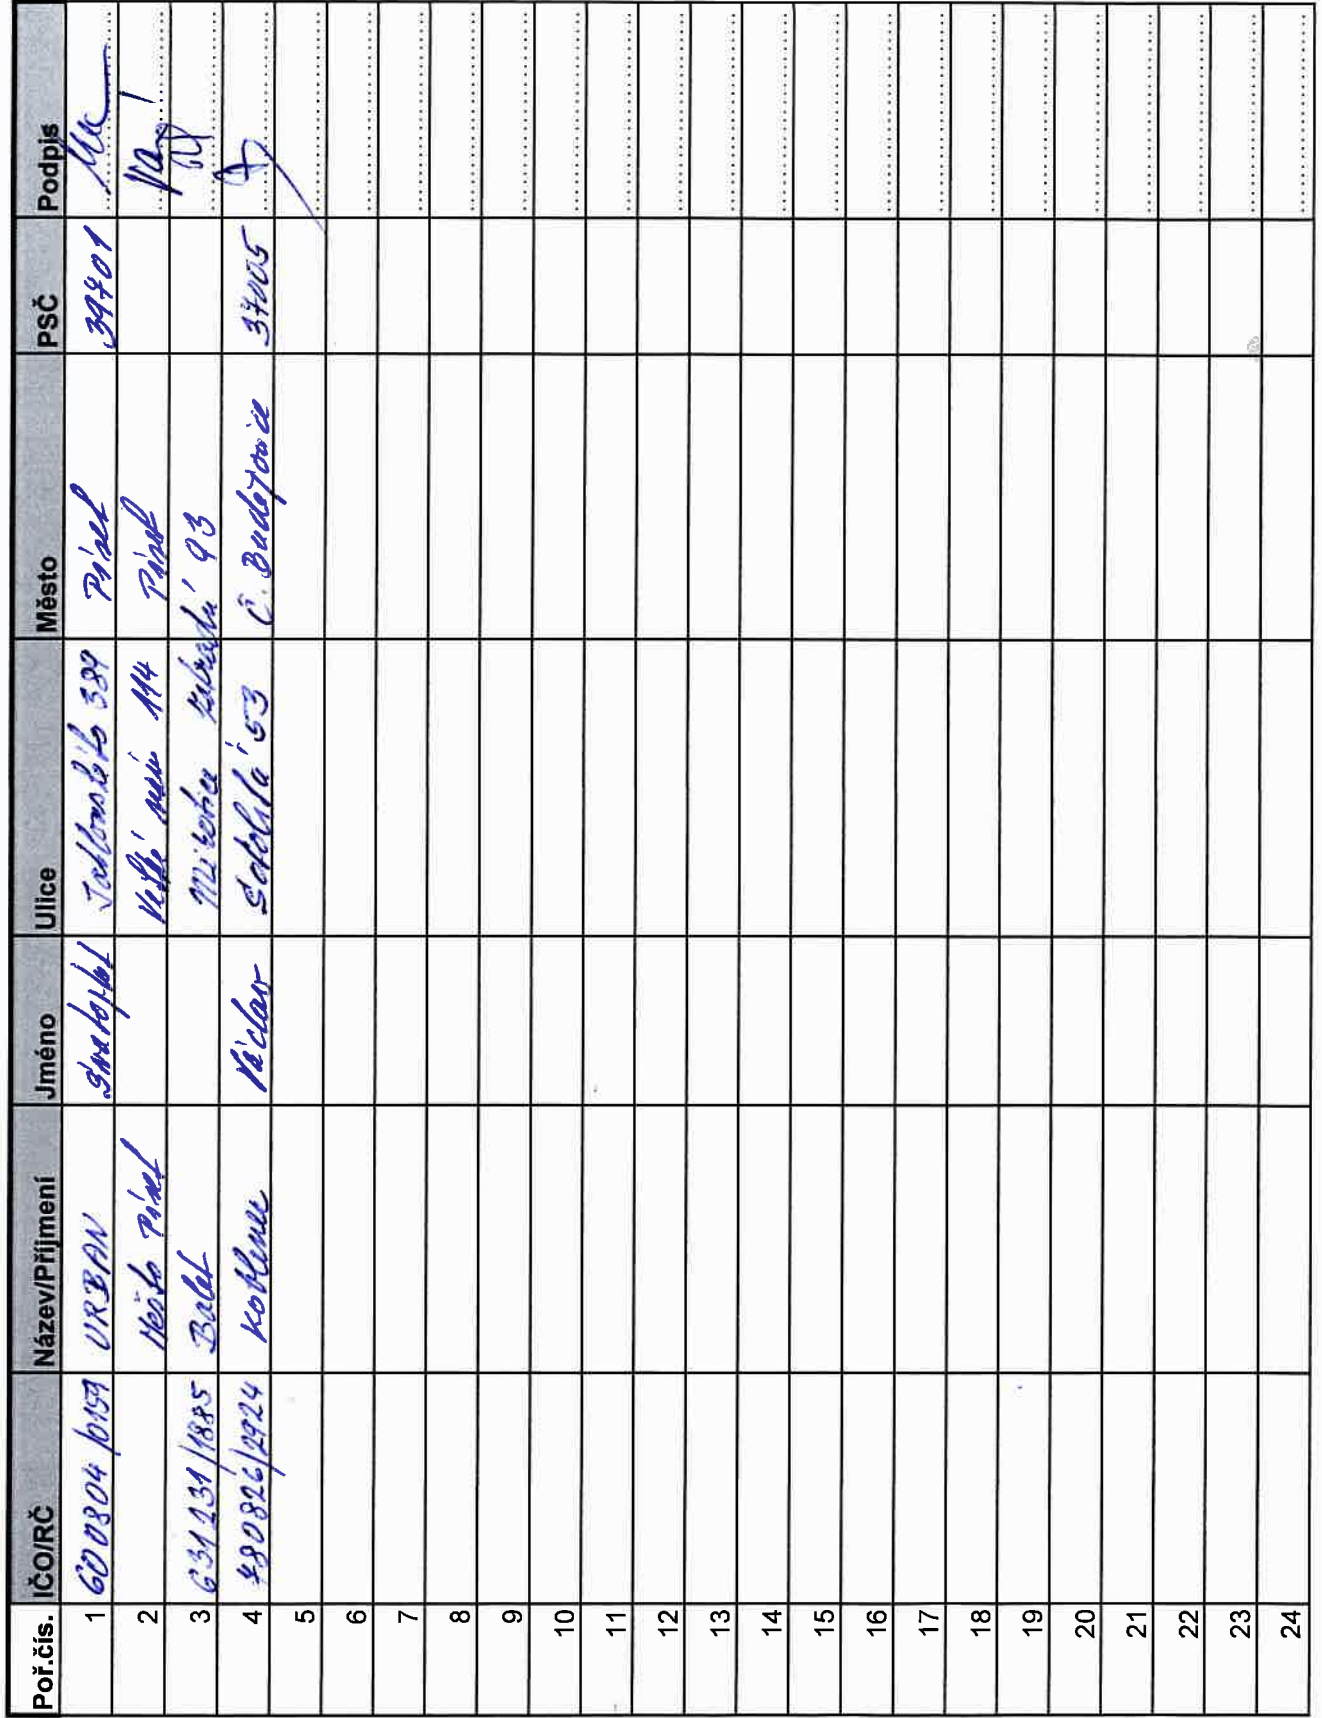 Poř.čís. IČO/RČ Název/Příjmení Jméno Ulice Město PSČ Podpis
1 600804/0159 URBAN Svatopluk Jablonského 389 Písek 39701
2 Město Písek Velké nám 114 Písek
3 631231/1885 Balek Mirotice 93
4 480826/2924 Václav 53 Č. Budějovice 37005
5
6
7
8
9
10
11
12
13
14
15
16
17
18
19
20
21
22
23
24